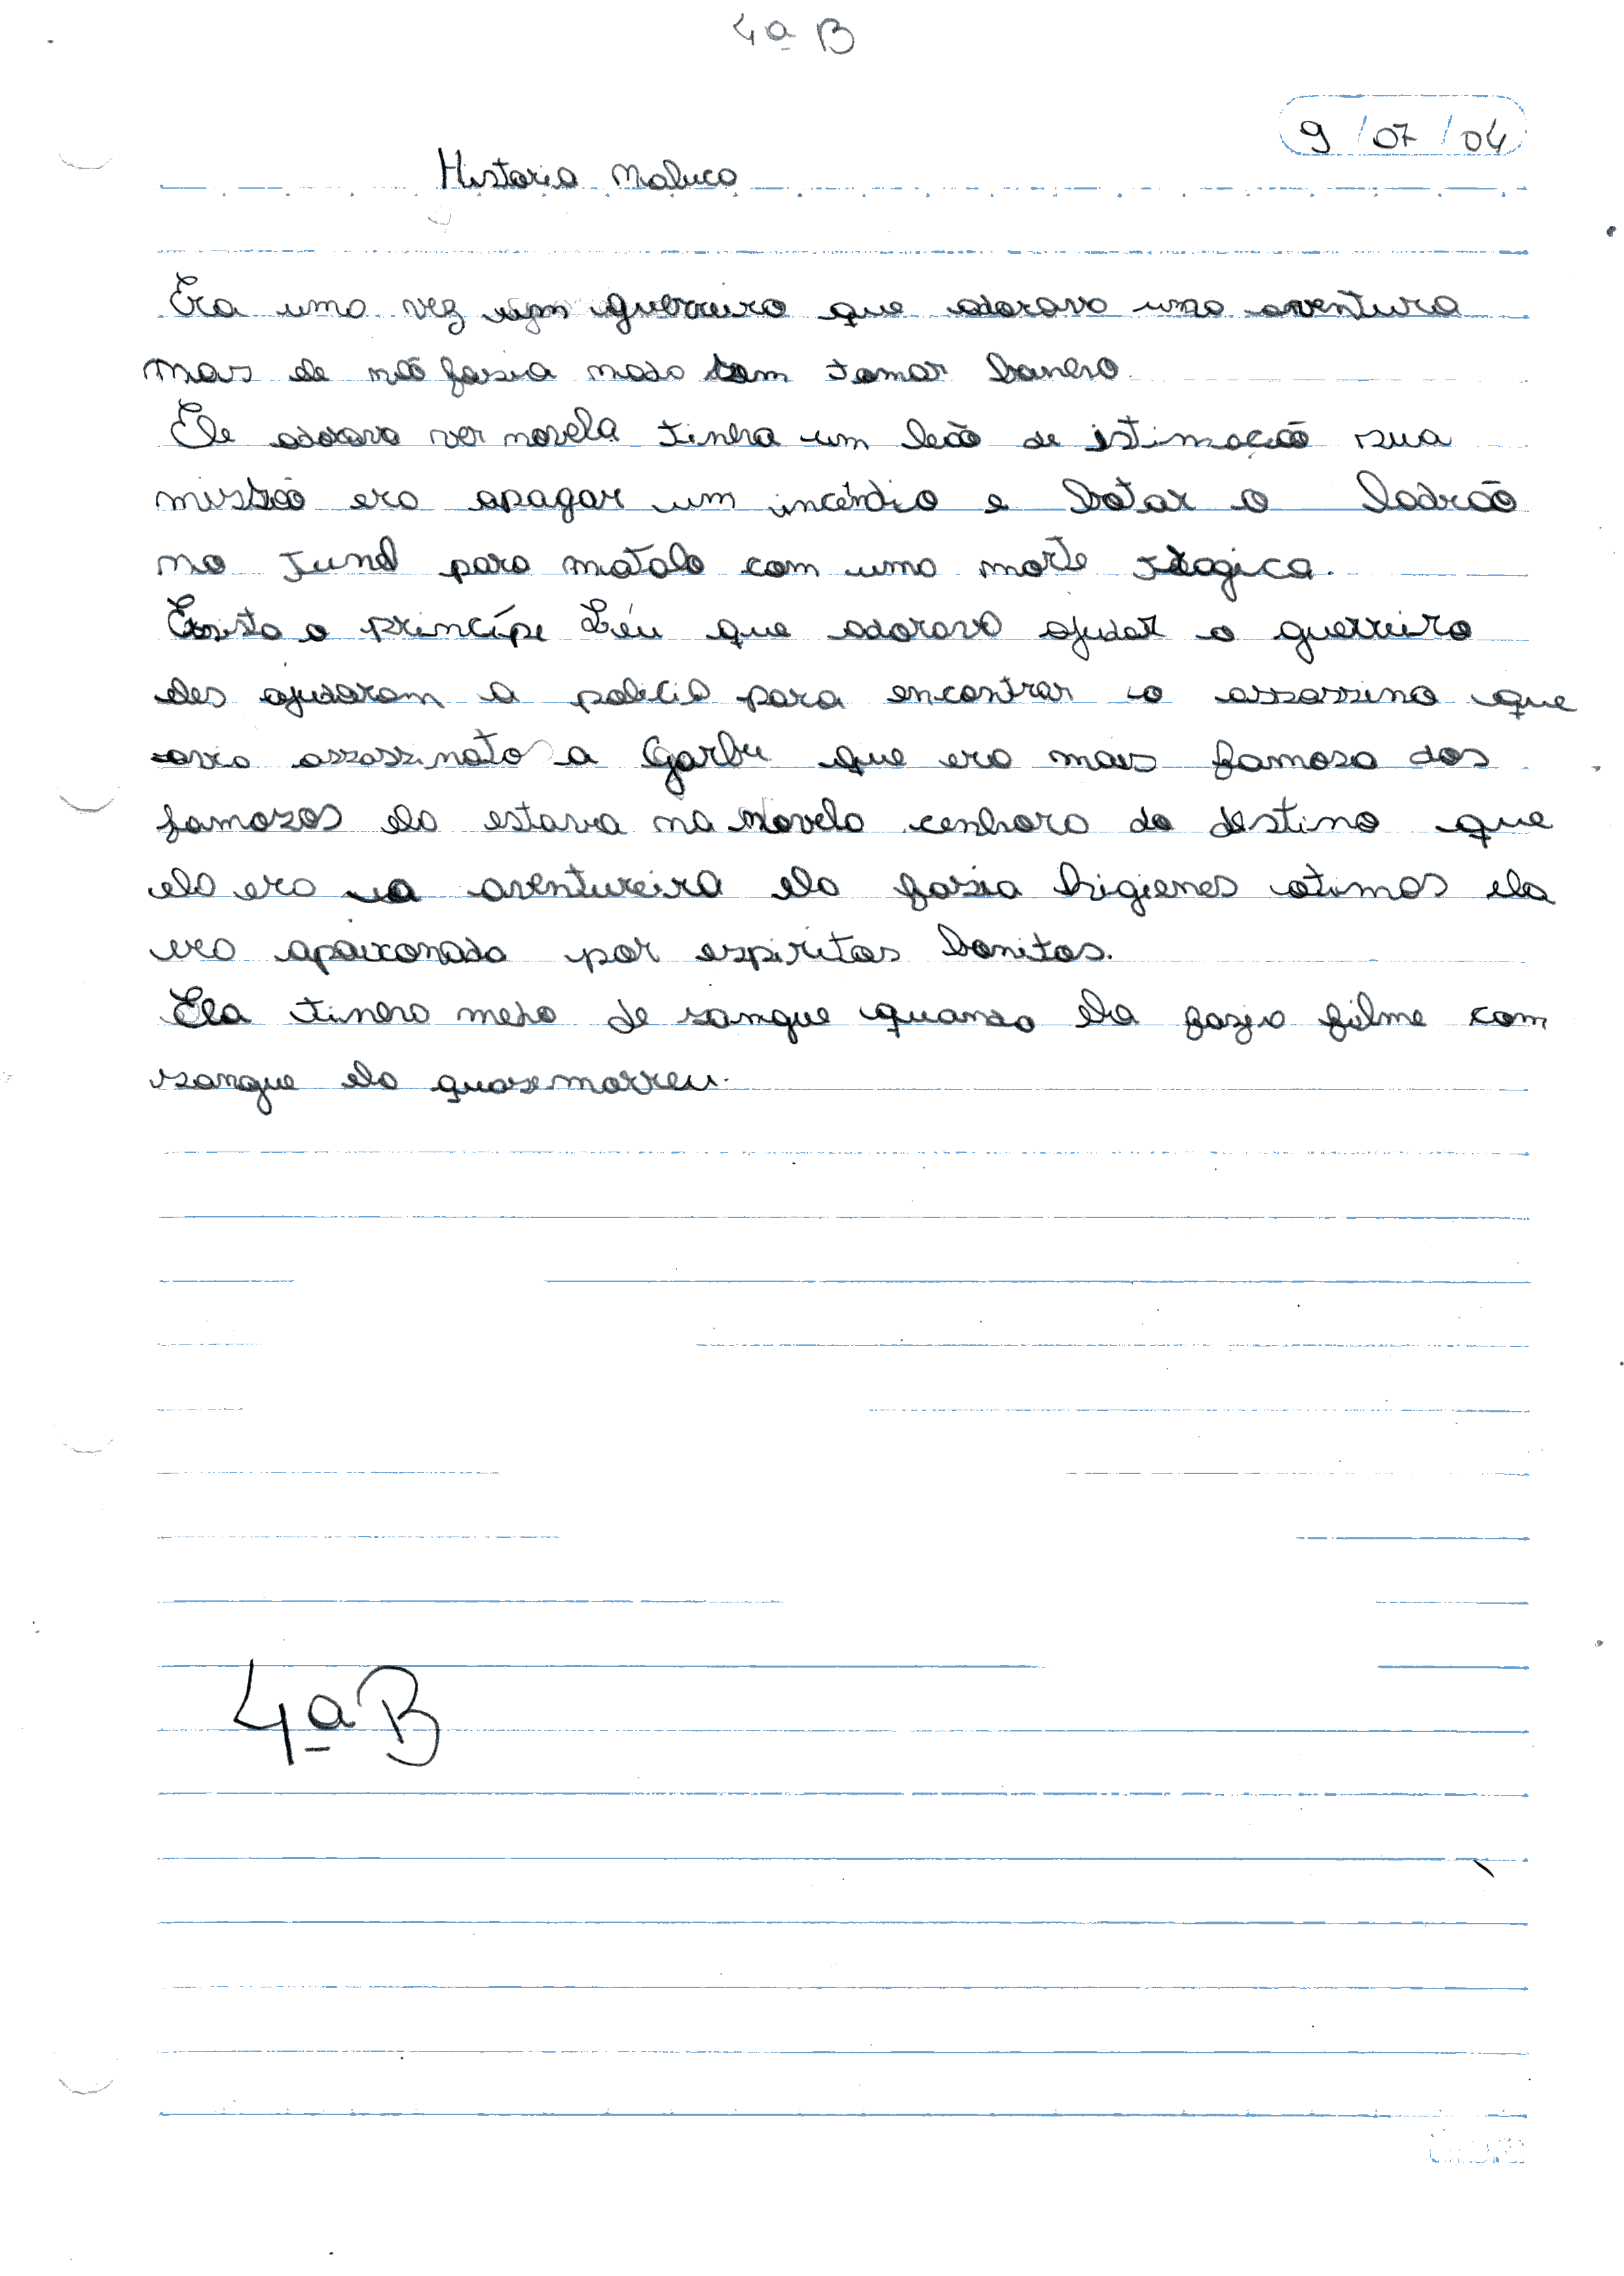 4ª B
9/07/04
Historia Maluca
Era uma vez um guerreiro que adorava uma aventura
mas ele não fasia nada bem tomar banho.
Ele adorava ver novela tinha um leão de istimação sua
missão era apagar um incêndio e botar o ladrão
no para matalo com uma morte tragica.
o princípe Léu que adorava ajudar o guerreiro
eles ajudaram a policia para encontrar o assassino que
avia assassinato a Garbu que era mais famosa dos
famosos ela estava na novela cenhora do destino que
ela era a aventureira ela fasia higienes otimas ela
era apaixonada por espiritos bonitos.
Ela tinha medo de sangue quando ela fazia filme com
sangue ela quase morreu.
4ª B